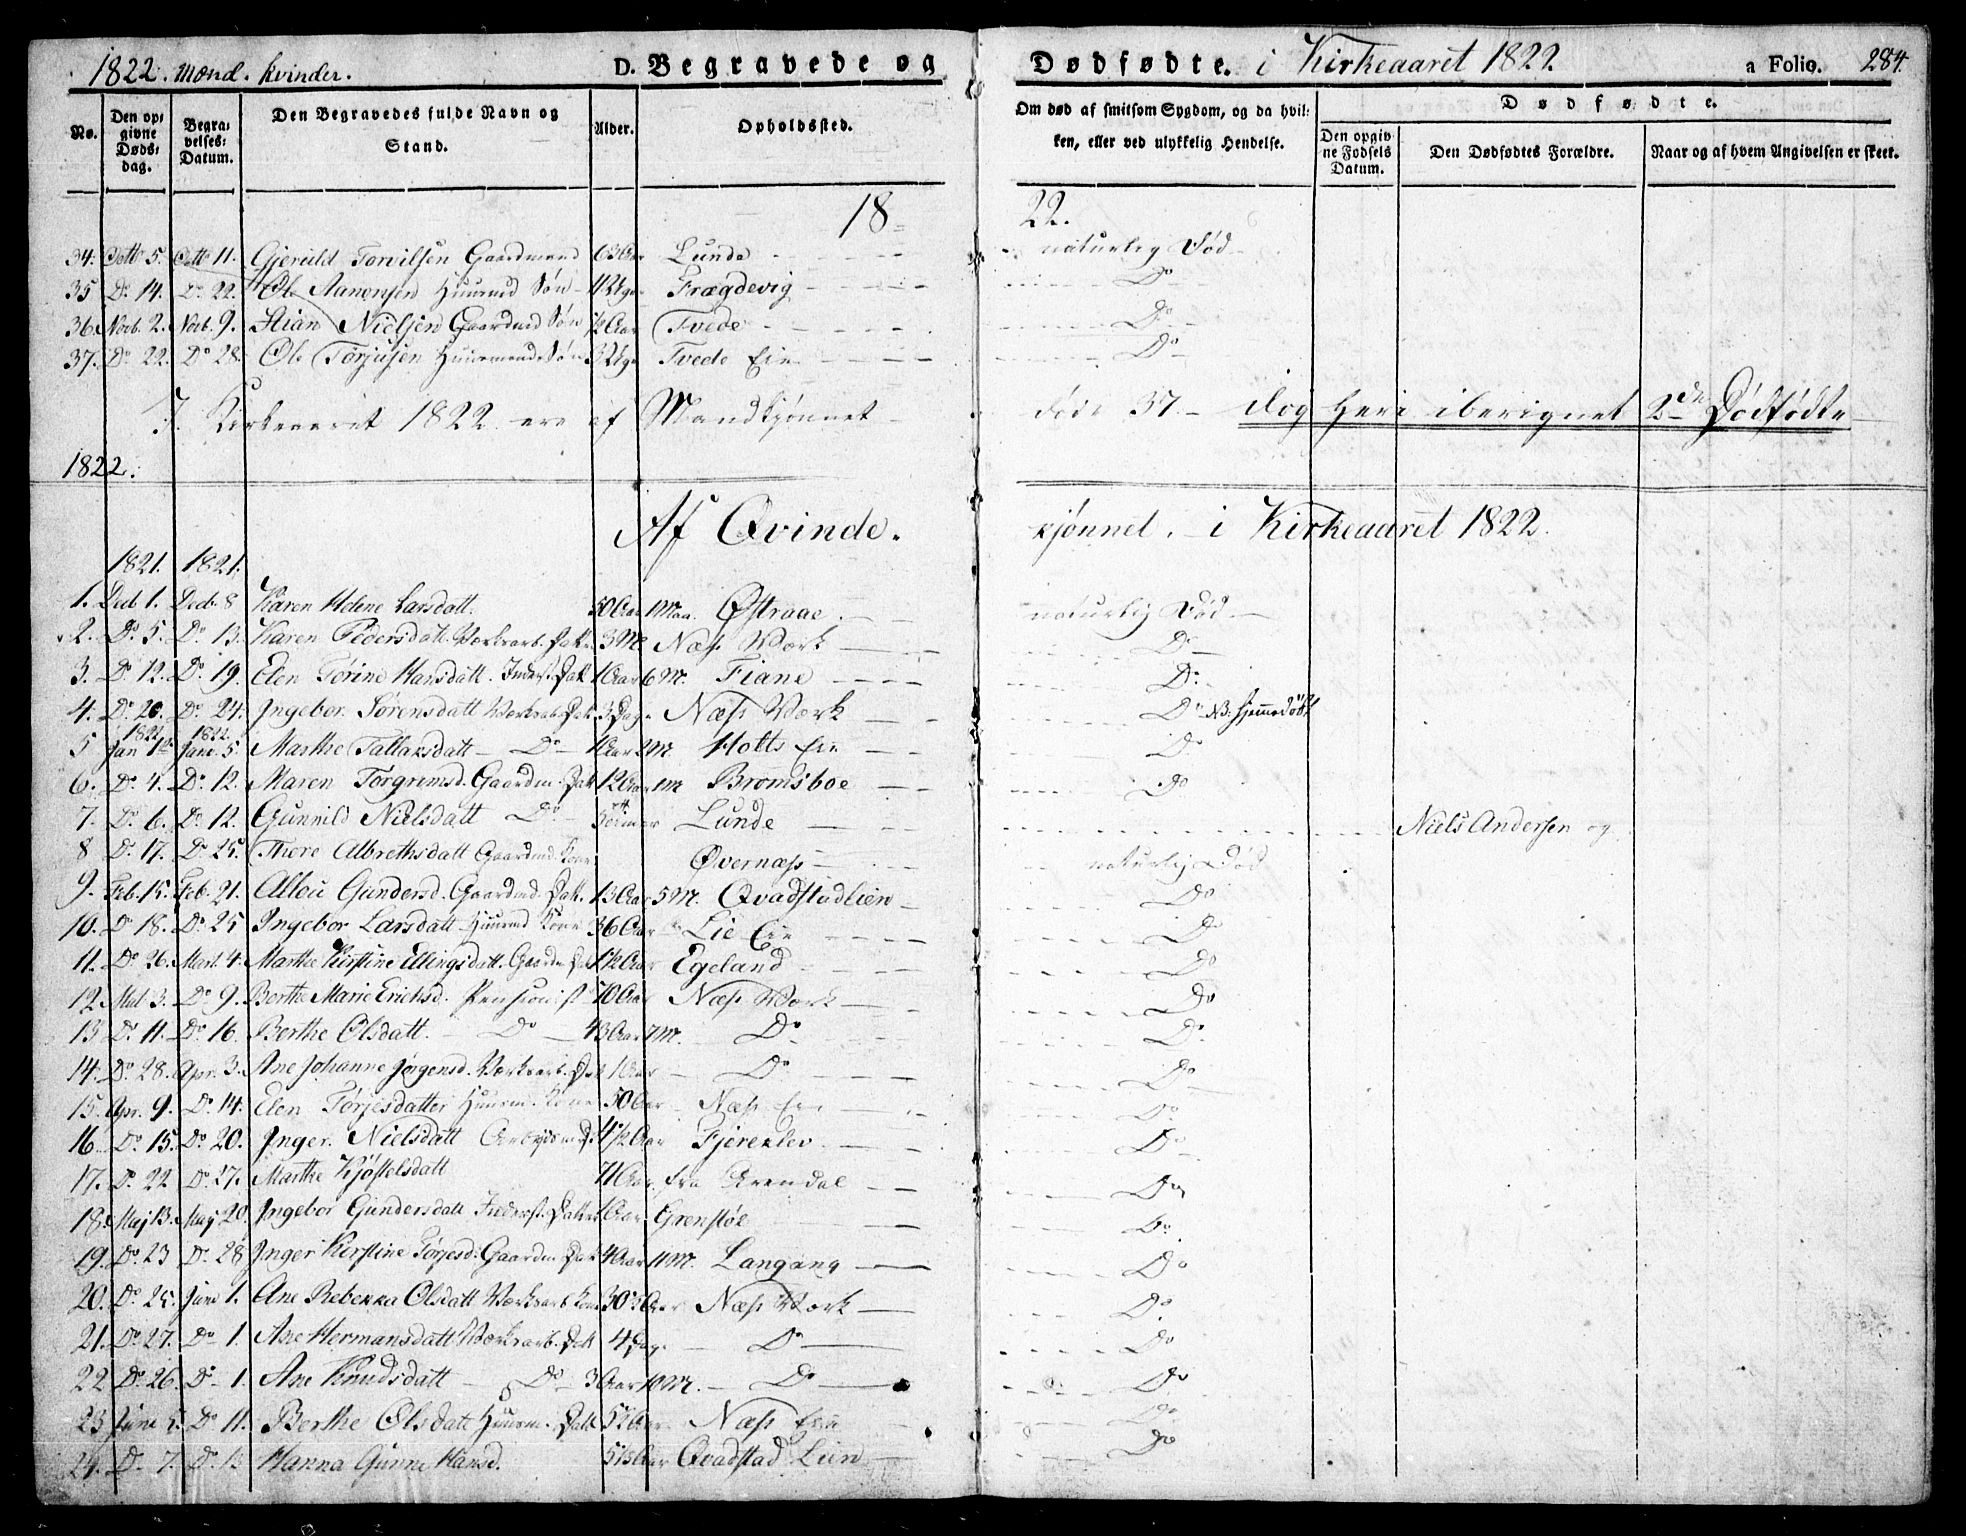 1822. Mænd. Kvinder. D. Begravede og Dødfødte. i Kirkeaaret 1822 a Folio. 284.
No. Den opgivne Dødsdag. Begravelses: Datum. Den Begravedes fulde Navn og Stand. Alder. Opholdssted. Om død af smitsom Sygdom, og da hvilken, eller ved ulykkelig Hendelse. Dødfødte. Den opgivne Fodsels Datum. Den Dødfødtes Forældre. Naar og af hvem Angivelsen er skeet.
18 22.
34. Octb 5. Octb 11. Gjeruld Torvilsen Gaardmand 63 Aar Lunde naturlig Død
35 Do 14. Do 22. Ole Aanonsen Huusmd Søn 11 Uger Frægdevig Do
36. Novb. 2. Novb. 9. Stian Nielsen Gaardmd Søn 1/2 Aar Tvede Do
37. Do 22. Do 28. Ole Torjusen Huusmands Søn 3 Uger Tvede Eie Do
I Kirkeaaret 1822 ere af Mandkjønnet døde 37. - dog heri iberignet 2de Dødfødte
1822.
Af Qvinde. kjønnet. i Kirkeaaret 1822.
1821. 1821.
1. Decb 1. Decb. 8 Karen Helene Larsdatt. 50 Aar 1 Maa. Østraae naturlig Død
2. Do 5. Do 13. Karen Pedersdatt. Værksarb. Datt. 3 M. Næss Værk Do
3. Do 12. Do 19. Elen Tørine Hansdatt. Inderst. Datt 1 Aar 6 M. Fiane Do
4. Do 20. Do 24. Ingebor. Sørensdatt Værksarb. Dat. 3 Dage Næss Værk Do NB. hjemmedøbt
1822 1822
5 Jan 1ste Janv. 5. Marthe Tallaksdatt - Do - 1 Aar 2 M Holts Eie Do
6. Do 4. Do 12. Maren Torgrimsd. Gaardm. Datt 12 Aar 1 M Bromsboe Do
7. Do 6. Do 12. Gunnild Nielsdatt Do Lunde Niels Andersen og
8 D. 17. Do 25. Thore Albrethsdatt Gaardmd. Kone Øvernæss naturlig Død
9. Feb. 15. Feb. 21. Aslou Gundersd. Gaardmd. Dat. 13 Aar 5 M. Qvadstadlien Do
10. Do 18. Do 25 Ingebor Larsdatt Huusmd Kone 36 Aar Lie Eie Do
11. Do 26. Mart. 4. Marthe Kirstine Ellingsdatt. Gaardm Dat 1 1/2 Aar Egeland Do
12. Mat 3. Do 9. Berthe Marie Erichsd. Pensionist 70 Aar Næss Værk Do
13 Do 11. Do 16. Berthe Olsdatt. Do 43 Aar 7 M. Do Do
14. Do 28. Apr. 3. Ane Johanne Jørgensd. Værksarb. Dat 1 Aar Do Do
15. Apr. 9. Do 14. Elen Torjesdatter Huusm. Kone 50 Aar Næss Eie Do
16 Do 15. Do 20. Inger. Nielsdatt 4 1/2 Aar Fjereklev Do
17. D. 22 Do 27. Marthe Kjøstelsdatt 71 Aar. fra Arendal Do
18. Maj 13. Maj 20. Ingebor Gundersdatt Inderst. Datter 1 Aar. Grenstøl Do
19. Do 23 D. 28 Inger Kirstine Torjesd. Gaardm. Dat. 4 Aar 11 M. Langang Do
20. Do 25. Juni 1. Ane Rebekka Olsdatt Værksarb. Kone 30 Aar Næss Værk Do
21. Do 27. Do 1. Ane Hermansdatt Værksarb. Dat 4 Dag. Do Do
22 Do 26. Do 1. Ane Knudsdatt Do 3 Aar 10 M. Do Do
23 Juni 5. Do 11. Berthe Olsdatt Huusm. Datt Næss Eie Do
24. D. 7. Do 13 Hanna Gunne Hansd. Qvadstad Lien Do